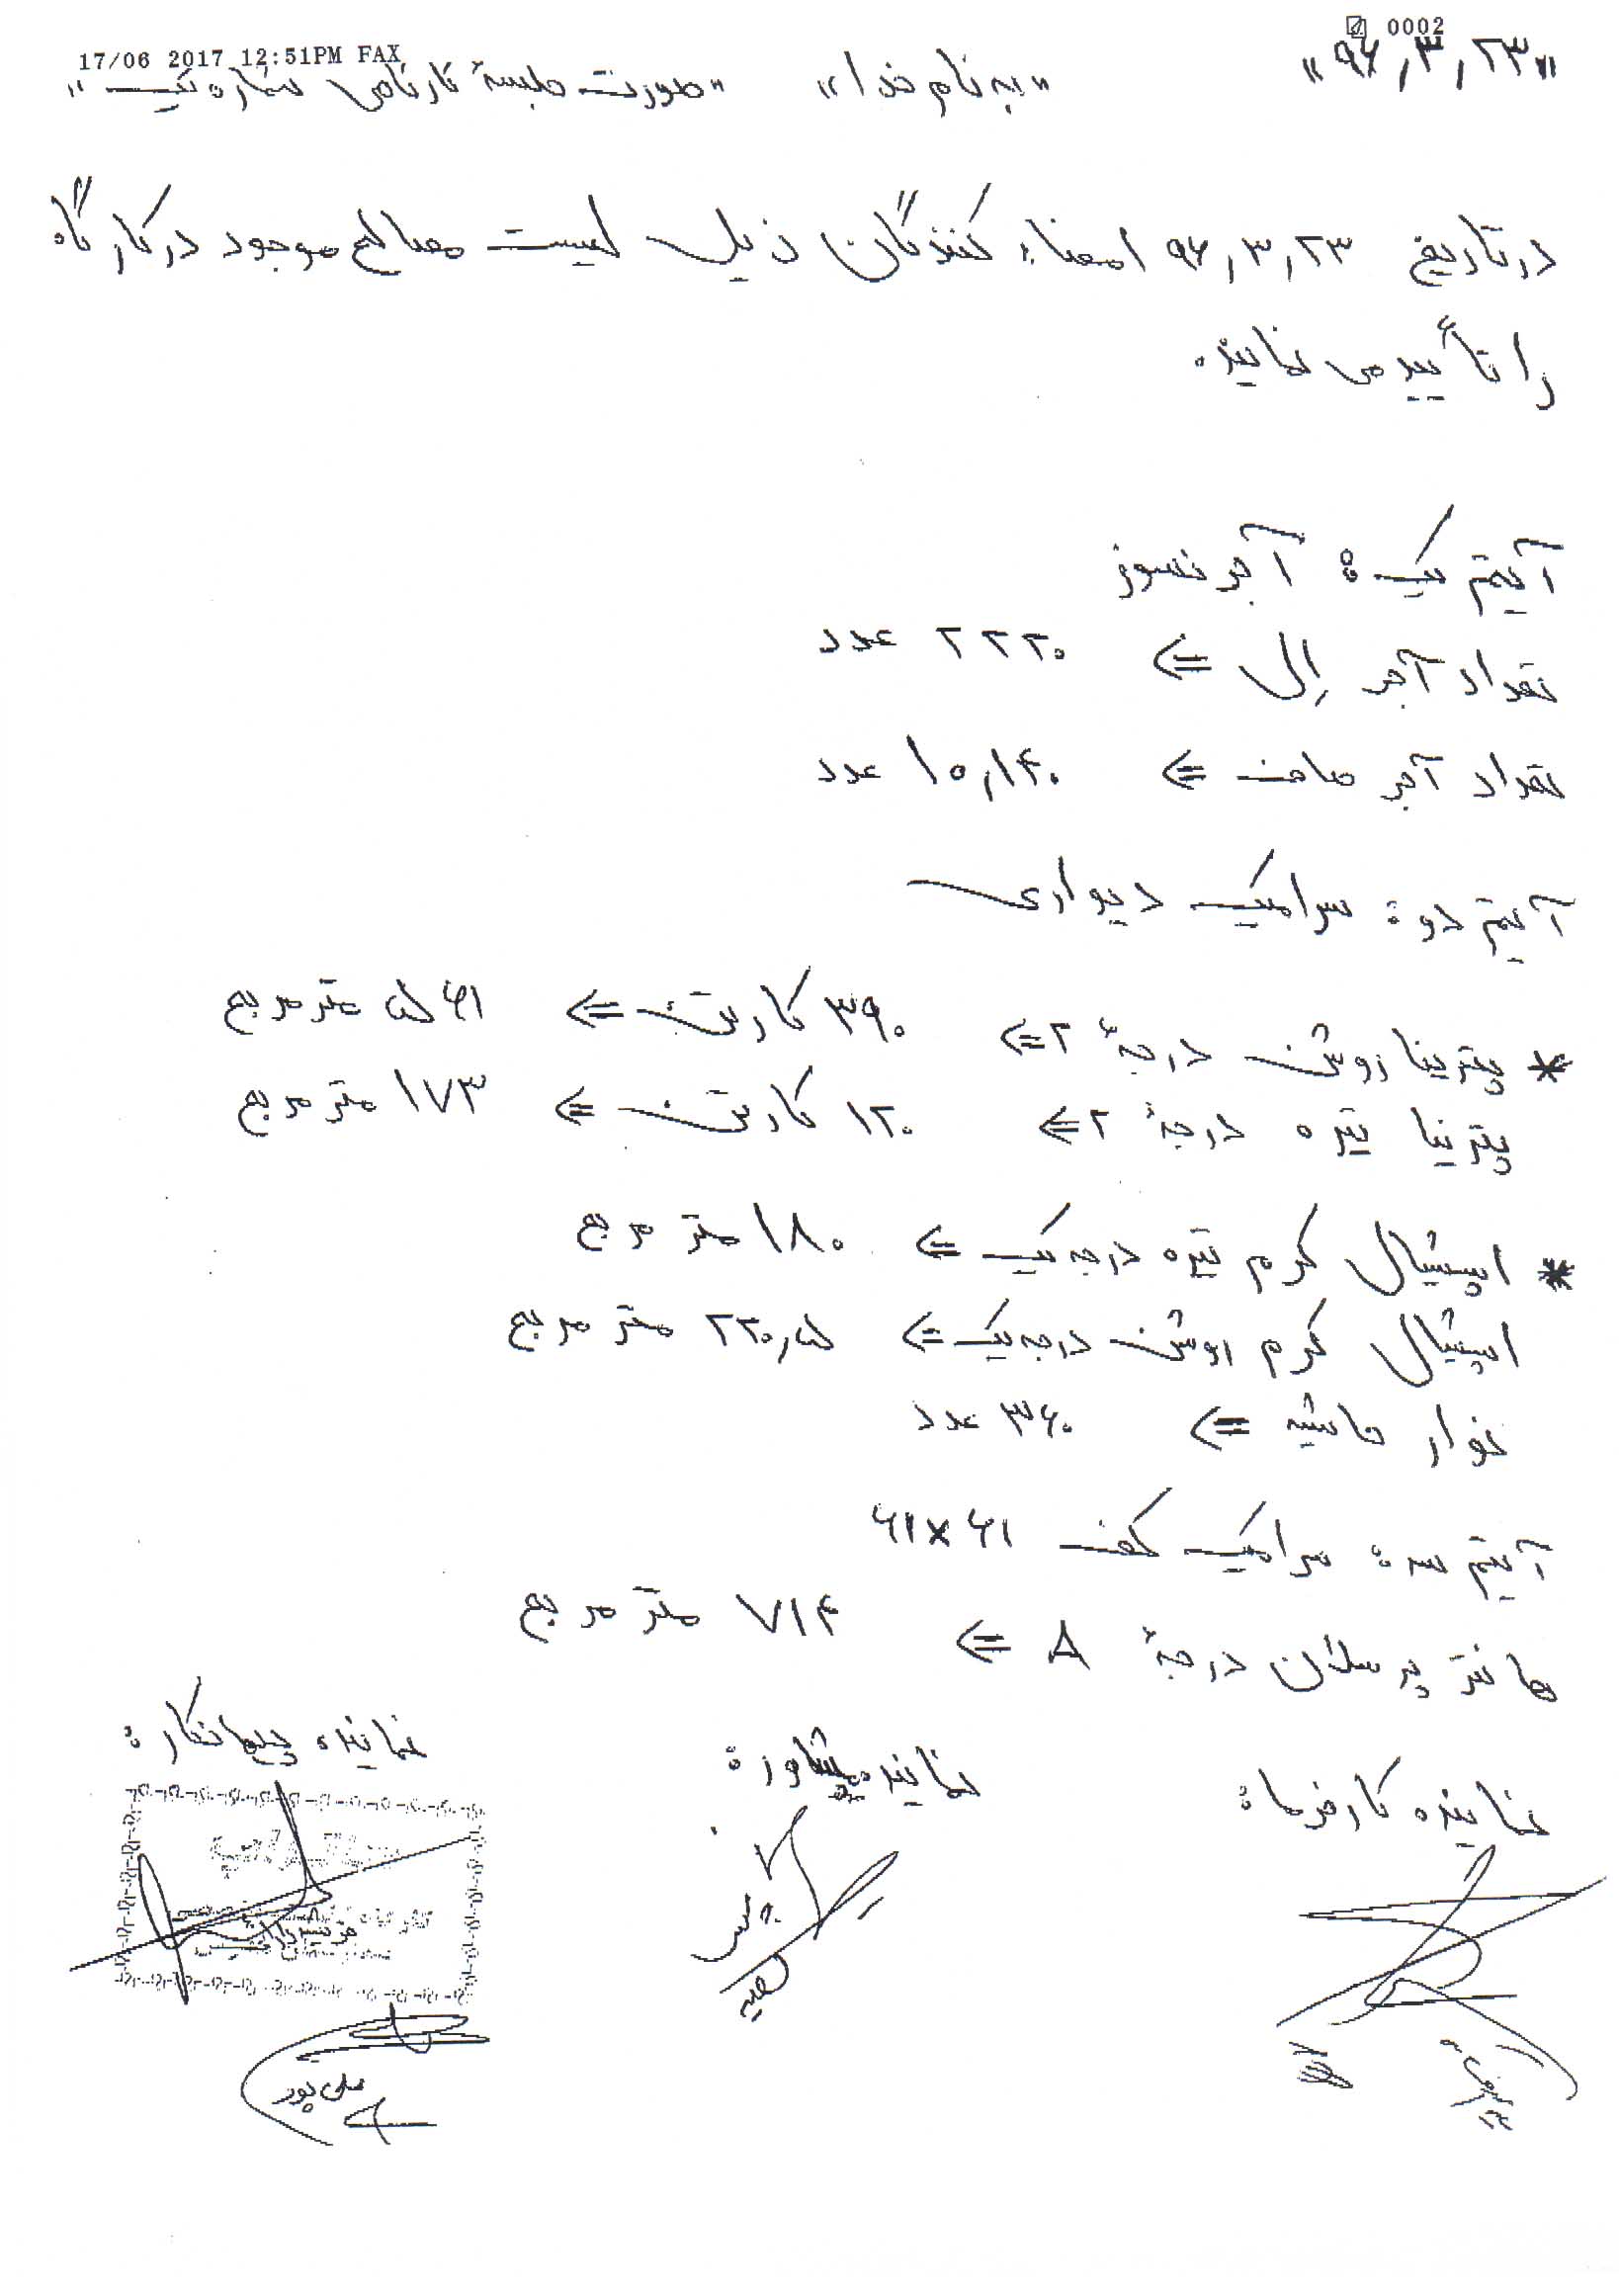 17/06 2017 12:51PM FAX 0002
«۹۶,۳,۲۳»
«به نام خدا»
«صورت جلسهٔ کارگاهی شماره یک»
در تاریخ ۹۶,۳,۲۳ امضاء کنندگان ذیل لیست مصالح موجود در کارگاه
را تأیید می نمایند.
آیتم یک: آجر نسوز
تعداد آجر اِل ⇐ ۲۲۲۰ عدد
تعداد آجر صاف ⇐ ۱۵,۱۴۰ عدد
آیتم دو: سرامیک دیواری
* پترینا روشن درجهٔ ۲ ⇐ ۳۹۰ کارتن ⇐ ۵۶۱ متر مربع
پترینا تیره درجهٔ ۲ ⇐ ۱۲۰ کارتن ⇐ ۱۷۳ متر مربع
* اسپشیال کرم تیره درجه یک ⇐ ۱۸۰ متر مربع
اسپشیال کرم روشن درجه یک ⇐ ۲۲۰,۵ متر مربع
نوار حاشیه ⇐ ۳۶۰ عدد
آیتم سه: سرامیک کف ۶۱×۶۱
هانتر پرسلان درجهٔ A ⇐ ۷۱۴ متر مربع
نماینده کارفرما:
نماینده مشاور:
نماینده پیمانکار:
علی پور